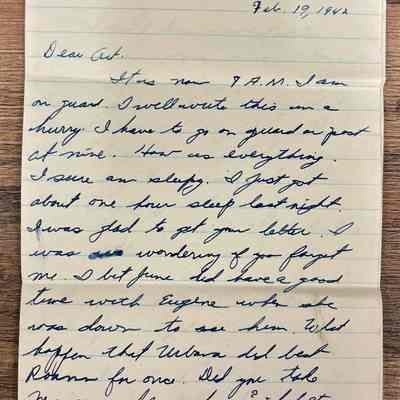 Feb. 19, 1942
Dear Art.
It is now 7 A.M. I am
on guard. I will write this in a
hurry. I have to go on guard or post
at nine. How is everything.
I sure am sleepy. I just got
about one hour sleep last night.
I was glad to get your letter. I
was wondering if you forget
me. I bet June did have a good
time with Eugene when she
was down to see him. What
happen that Urbana did beat
Roann for once. Did you take